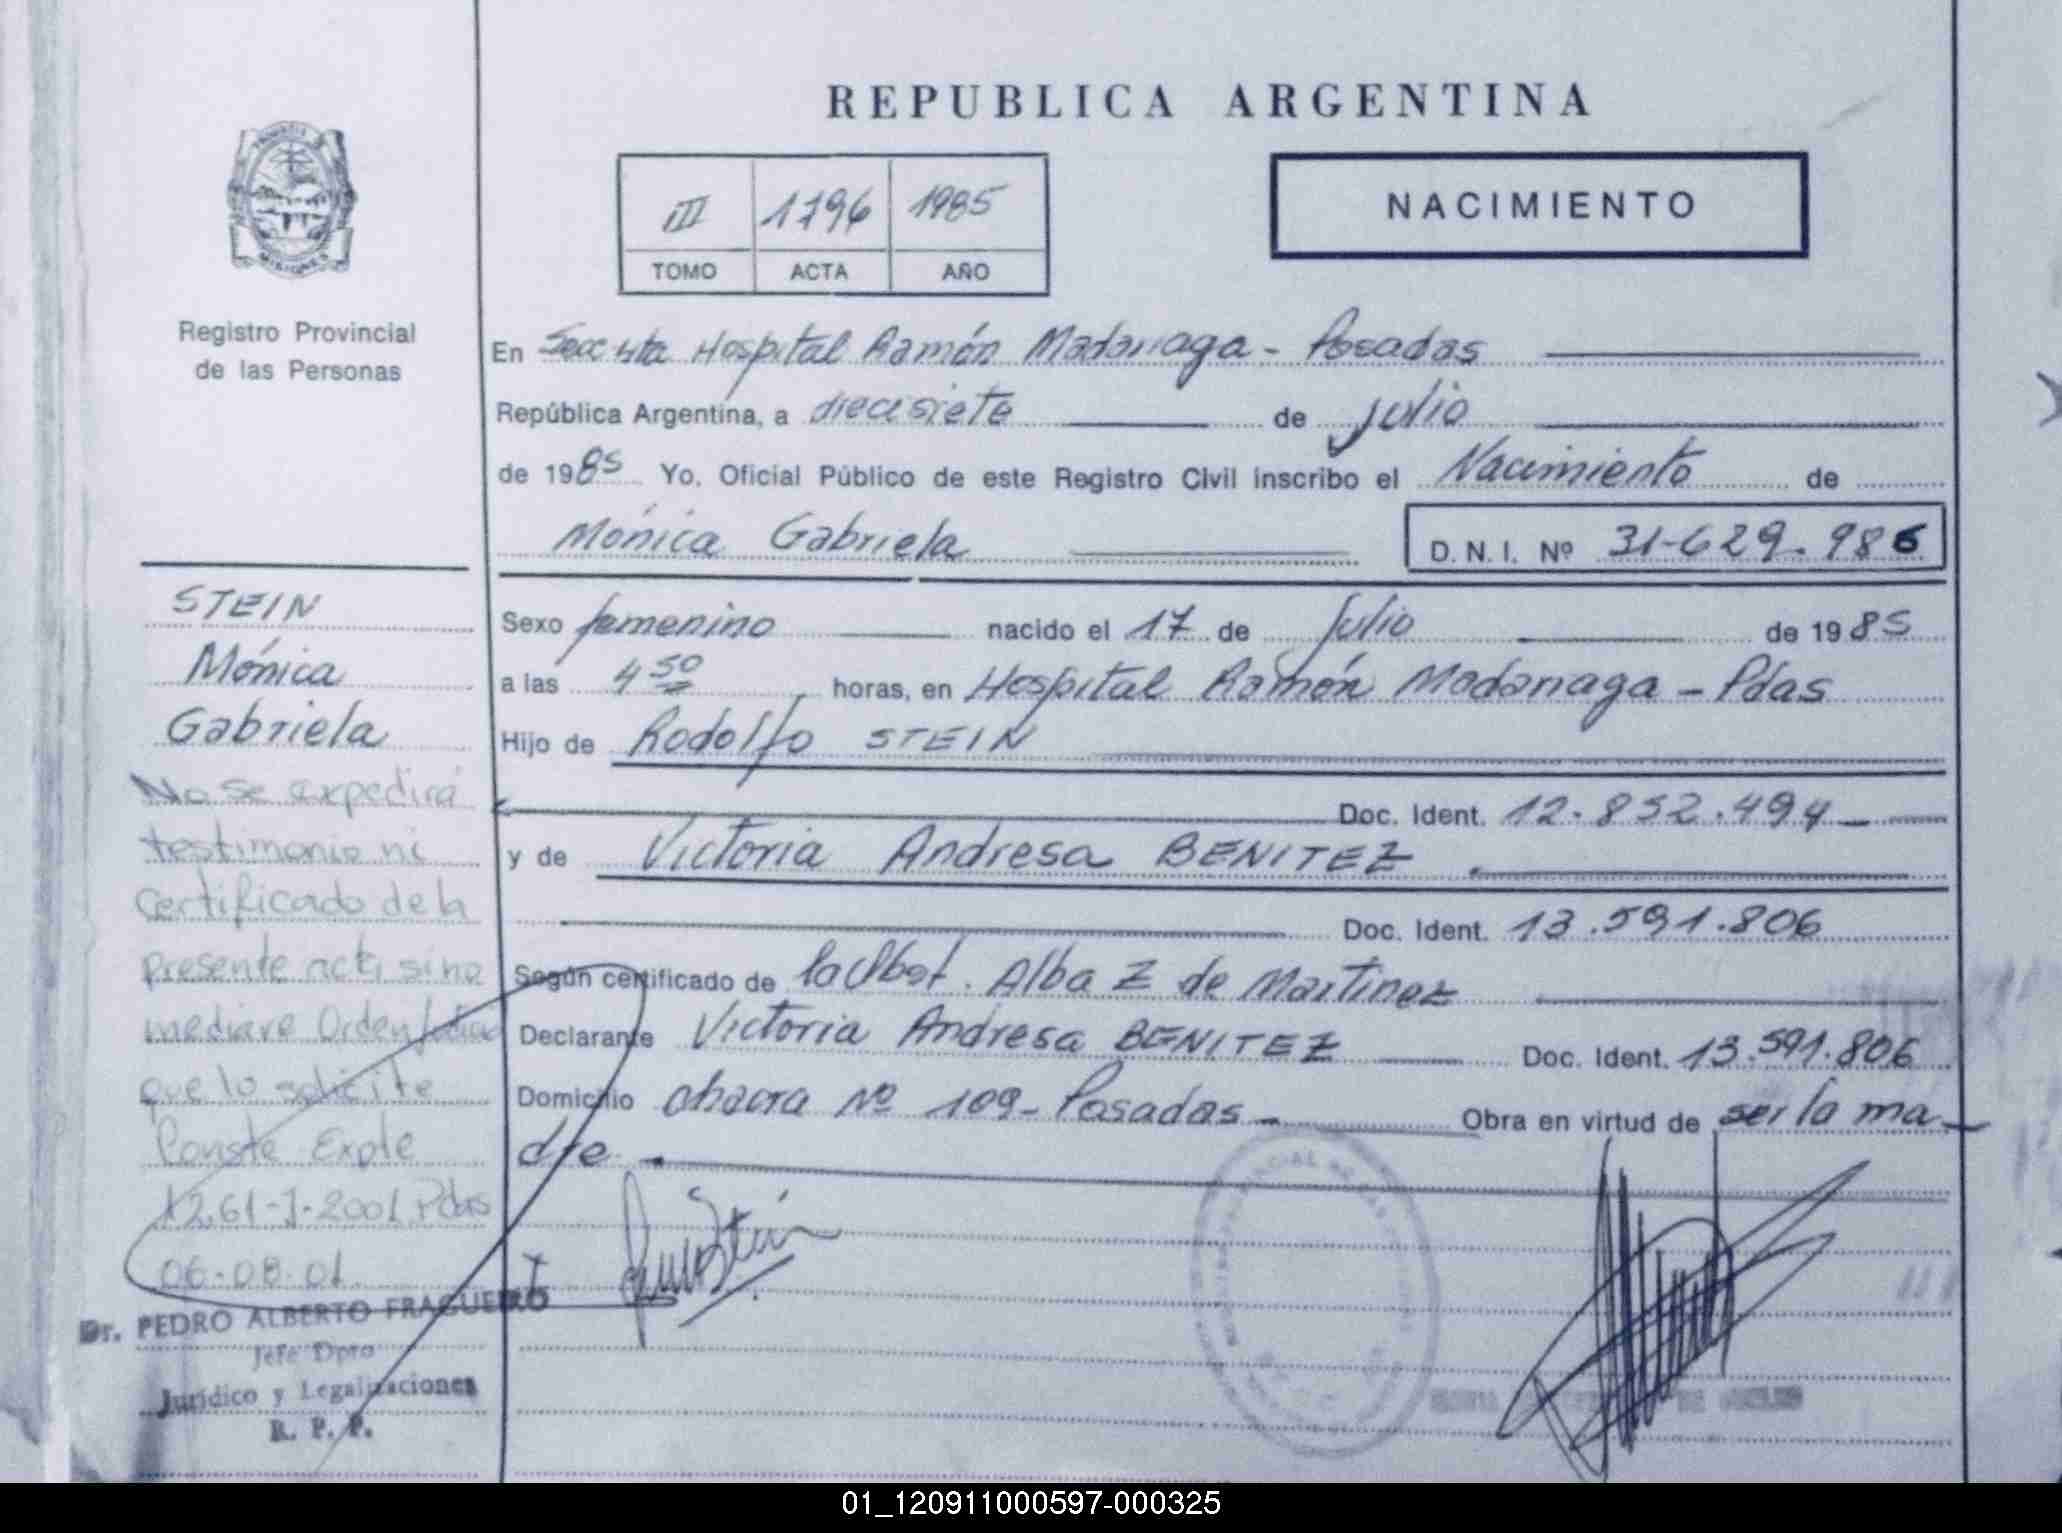 REPUBLICA ARGENTINA
III 1796 1985
TOMO ACTA AÑO
NACIMIENTO
MISIONES
Registro Provincial
de las Personas
En Hospital Ramón Madariaga - Posadas
República Argentina, a diecisiete de julio
de 1985 Yo, Oficial Público de este Registro Civil inscribo el Nacimiento de
Mónica Gabriela
D. N. I. Nº 31-629.986
Sexo femenino nacido el 17 de Julio de 1985
a las 4 50 horas, en Hospital Ramón Madariaga - Pdas
Hijo de Rodolfo STEIN
Doc. Ident. 12.852.494
y de Victoria Andresa BENITEZ
Doc. Ident. 13.591.806
Según certificado de Alba Z de Martinez
Declarante Victoria Andresa BENITEZ Doc. Ident. 13.591.806
Domicilio chacra Nº 109 - Posadas Obra en virtud de ser la ma-
dre.
STEIN
Mónica
Gabriela
No se expedirá
testimonio ni
certificado de la
presente acta sino
mediare Orden
que lo solicite
Conste Expte
1261-J-2001 Pdas
06-08-01
Dr. PEDRO ALBERTO FRAGUEIRO
Jefe Dpto
Jurídico y Legalizaciones
R. P. P.
01_120911000597-000325